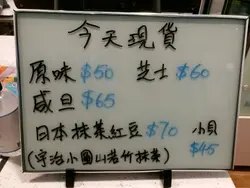 今天現貨
原味 $50 芝士 $60
咸旦 $65
日本抹茶紅豆 $70 小貝 $45
(宇治小園山若竹抹茶)